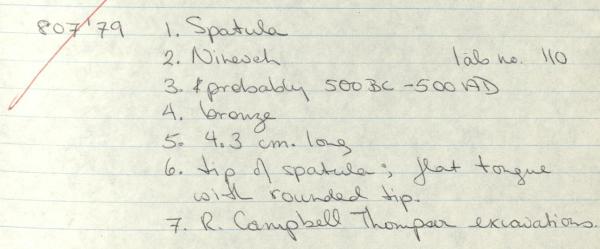 807'79 1. Spatula
2. Nineveh lab no. 110
3. probably 500 BC - 500 AD
4. bronze
5. 4.3 cm. long
6. tip of spatula; flat tongue
with rounded tip.
7. R. Campbell Thompson excavations.